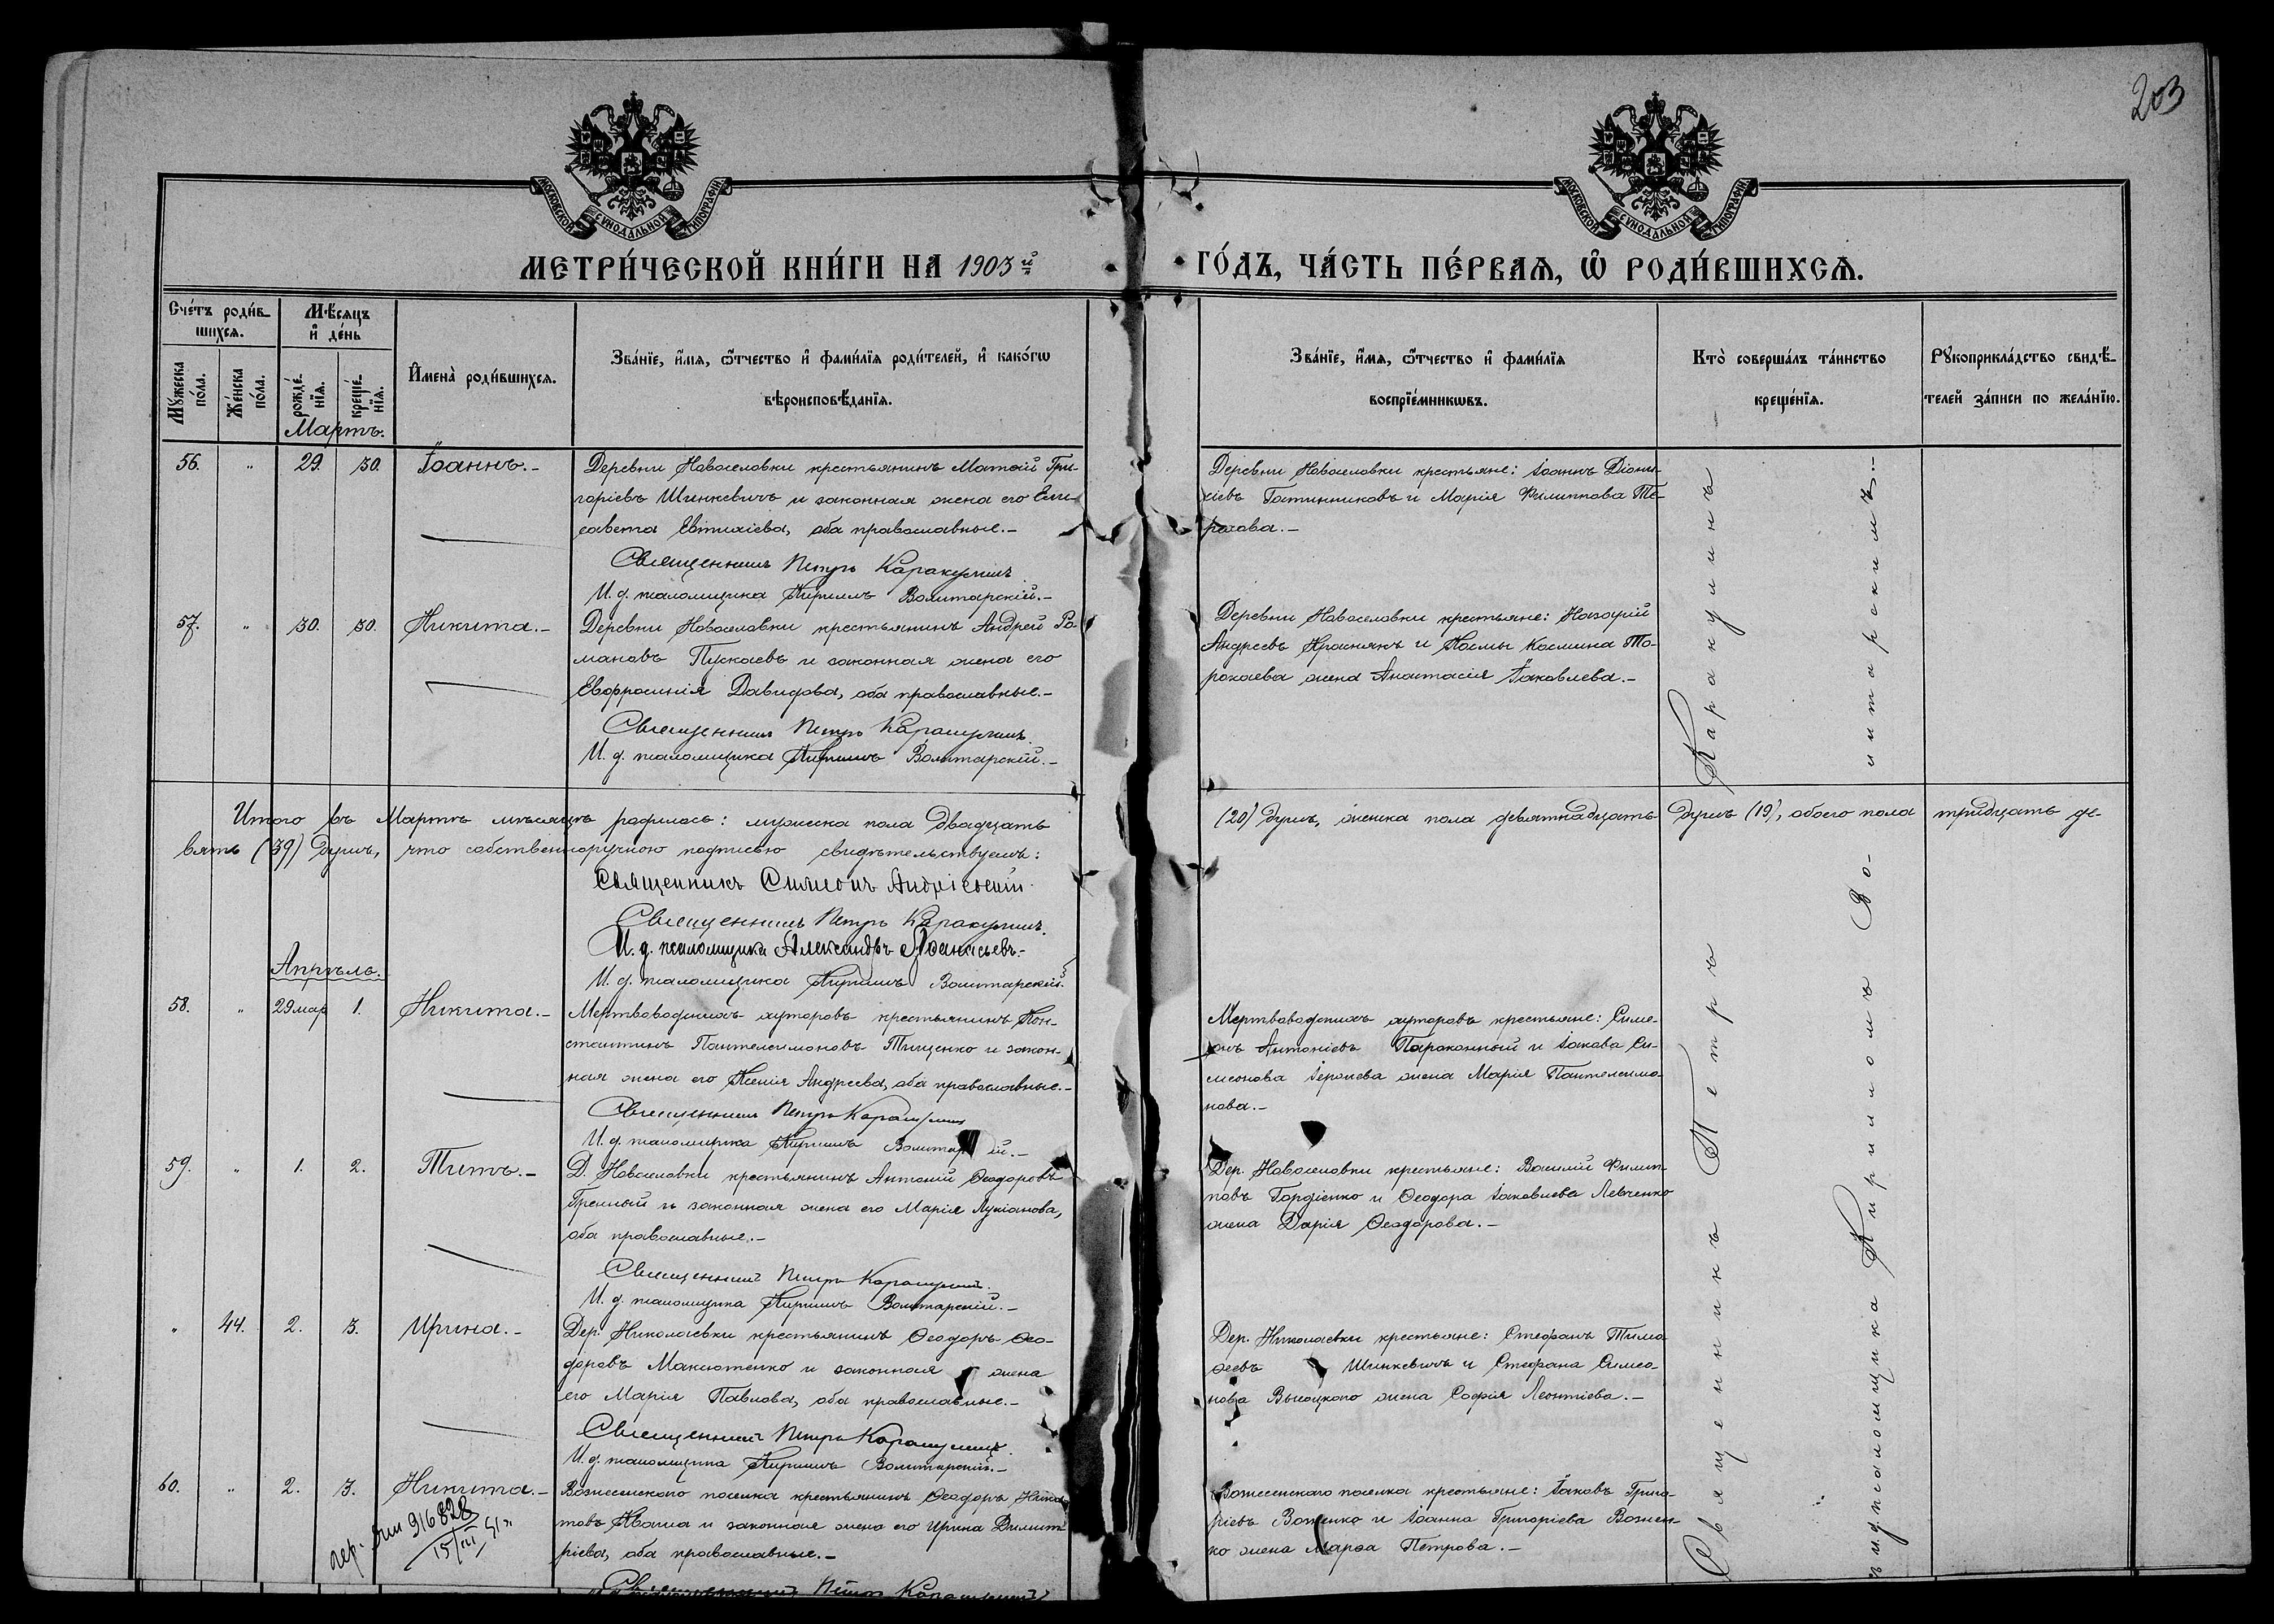 203
МОСКОВСКОЙ СѴНОДАЛЬНОЙ ТИПОГРАФІИ
МОСКОВСКОЙ СѴНОДАЛЬНОЙ ТИПОГРАФІИ
МЕТРИ́ЧЕСКОЙ КНИ́ГИ НА 1903й ГО́ДЪ, ЧА́СТЬ ПЕ́РВАѦ, Ѡ҆ РОДИ́ВШИХСѦ.
Сче́тъ роди́вшихсѧ.
Мѣ́сѧцъ и҆ де́нь
Мꙋ́жеска по́ла.
Же́нска по́ла.
рожде́нїѧ.
креще́нїѧ.
И҆мена̀ роди́вшихсѧ.
Зва́нїе, и҆́мѧ, ѻ҆́тчество и҆ фами́лїѧ роди́телей, и҆ како́гѡ
вѣроисповѣ́данїѧ.
Зва́нїе, и҆́мѧ, ѻ҆́тчество и҆ фами́лїѧ
воспрїе́мникѡвъ.
Кто̀ соверша́лъ та́инство
креще́нїѧ.
Рꙋкоприкла́дство свидѣ́телей за́писи по жела́нїю.
Мартъ.
56. " 29. 30. Іоаннъ.-
Деревни Новоселовки крестьянинъ Матѳій Гри-
горіевъ Шинкевичъ и законная жена его Ели-
савета Евтихіева, оба православные.-
Священникъ Петръ Каракулинъ
И. д. псаломщика Кириллъ Волитарскій.-
Деревни Новоселовки крестьяне: Іоаннъ Діони-
сіевъ Гатинниковъ и Марія Филиппова Те-
рехова.-
57. " 30. 30. Никита.-
Деревни Новоселовки крестьянинъ Андрей Ро-
мановъ Пускаевъ и законная жена его
Евфросинія Давидова, оба православные.-
Священникъ Петръ Каракулинъ.
И. д. псаломщика Кириллъ Волитарскій.-
Деревни Новоселовки крестьяне: Назарій
Андреевъ Краснякъ и Космы Космина То-
рокаева жена Анастасія Іаковлева.-
Итого въ Мартѣ мѣсяцѣ родилось: мужеска пола двадцать (20) душъ, женска пола девятнадцать душъ (19), обоего пола тридцать де-
вять (39) душъ, что собственноручною подписью свидѣтельствуемъ:
Священникъ Симеонъ Андріевскій.
Священникъ Петръ Каракулинъ.
И. д. псаломщика Александръ Аѳанасьевъ.-
И. д. псаломщика Кириллъ Волитарскій.
Апрѣль.
58. " 29 мар. 1. Никита.-
Мертвоводскихъ хуторовъ крестьянинъ Кон-
стантинъ Пантелеимоновъ Тищенко и закон-
ная жена его Ксенія Андреева, оба православные.-
Священникъ Петръ Каракулинъ
И. д. псаломщика Кириллъ
Мертвоводскихъ хуторовъ крестьяне: Симе-
онъ Антоніевъ и Іакова Си-
меонова жена Марія Пантелеимо-
нова.-
59. " 1. 2. Титъ.-
Д. Новоселовки крестьянинъ Антоній Ѳеодоровъ
и законная жена его Марія Лукіанова,
оба православные.-
Священникъ Петръ Каракулинъ.
И. д. псаломщика Кириллъ Волитарскій.-
Дер. Новоселовки крестьяне: Василій Филип-
повъ Гордіенко и Ѳеодора Іаковлева Левченко
жена Дарія Ѳеодорова.-
" 44. 2. 3. Ирина.-
Дер. Николаевки крестьянинъ Ѳеодоръ Ѳео-
доровъ Максютенко и законная жена
его Марія Павлова, оба православные.-
Священникъ Петръ Каракулинъ.
И. д. псаломщика Кириллъ Волитарскій.-
Дер. Николаевки крестьяне: Стефанъ Тимо-
ѳеевъ Шинкевичъ и Стефана Симео-
нова Высоцкого жена Софія Леонтіева.-
60. " 2. 3. Никита.-
Вознесенскаго поселка крестьянинъ Ѳеодоръ
и законная жена его Ирина Димит-
ріева, оба православные.-
Священникъ Петръ Каракулинъ
Вознесенскаго поселка крестьяне: Іаковъ Григо-
ріевъ и Іоанна Григоріева
жена Марѳа Петрова.-
916828
15/III 51 г
Священникъ Петръ Каракулинъ
и. д. псаломщика Кирилломъ Во-
литарскимъ.-